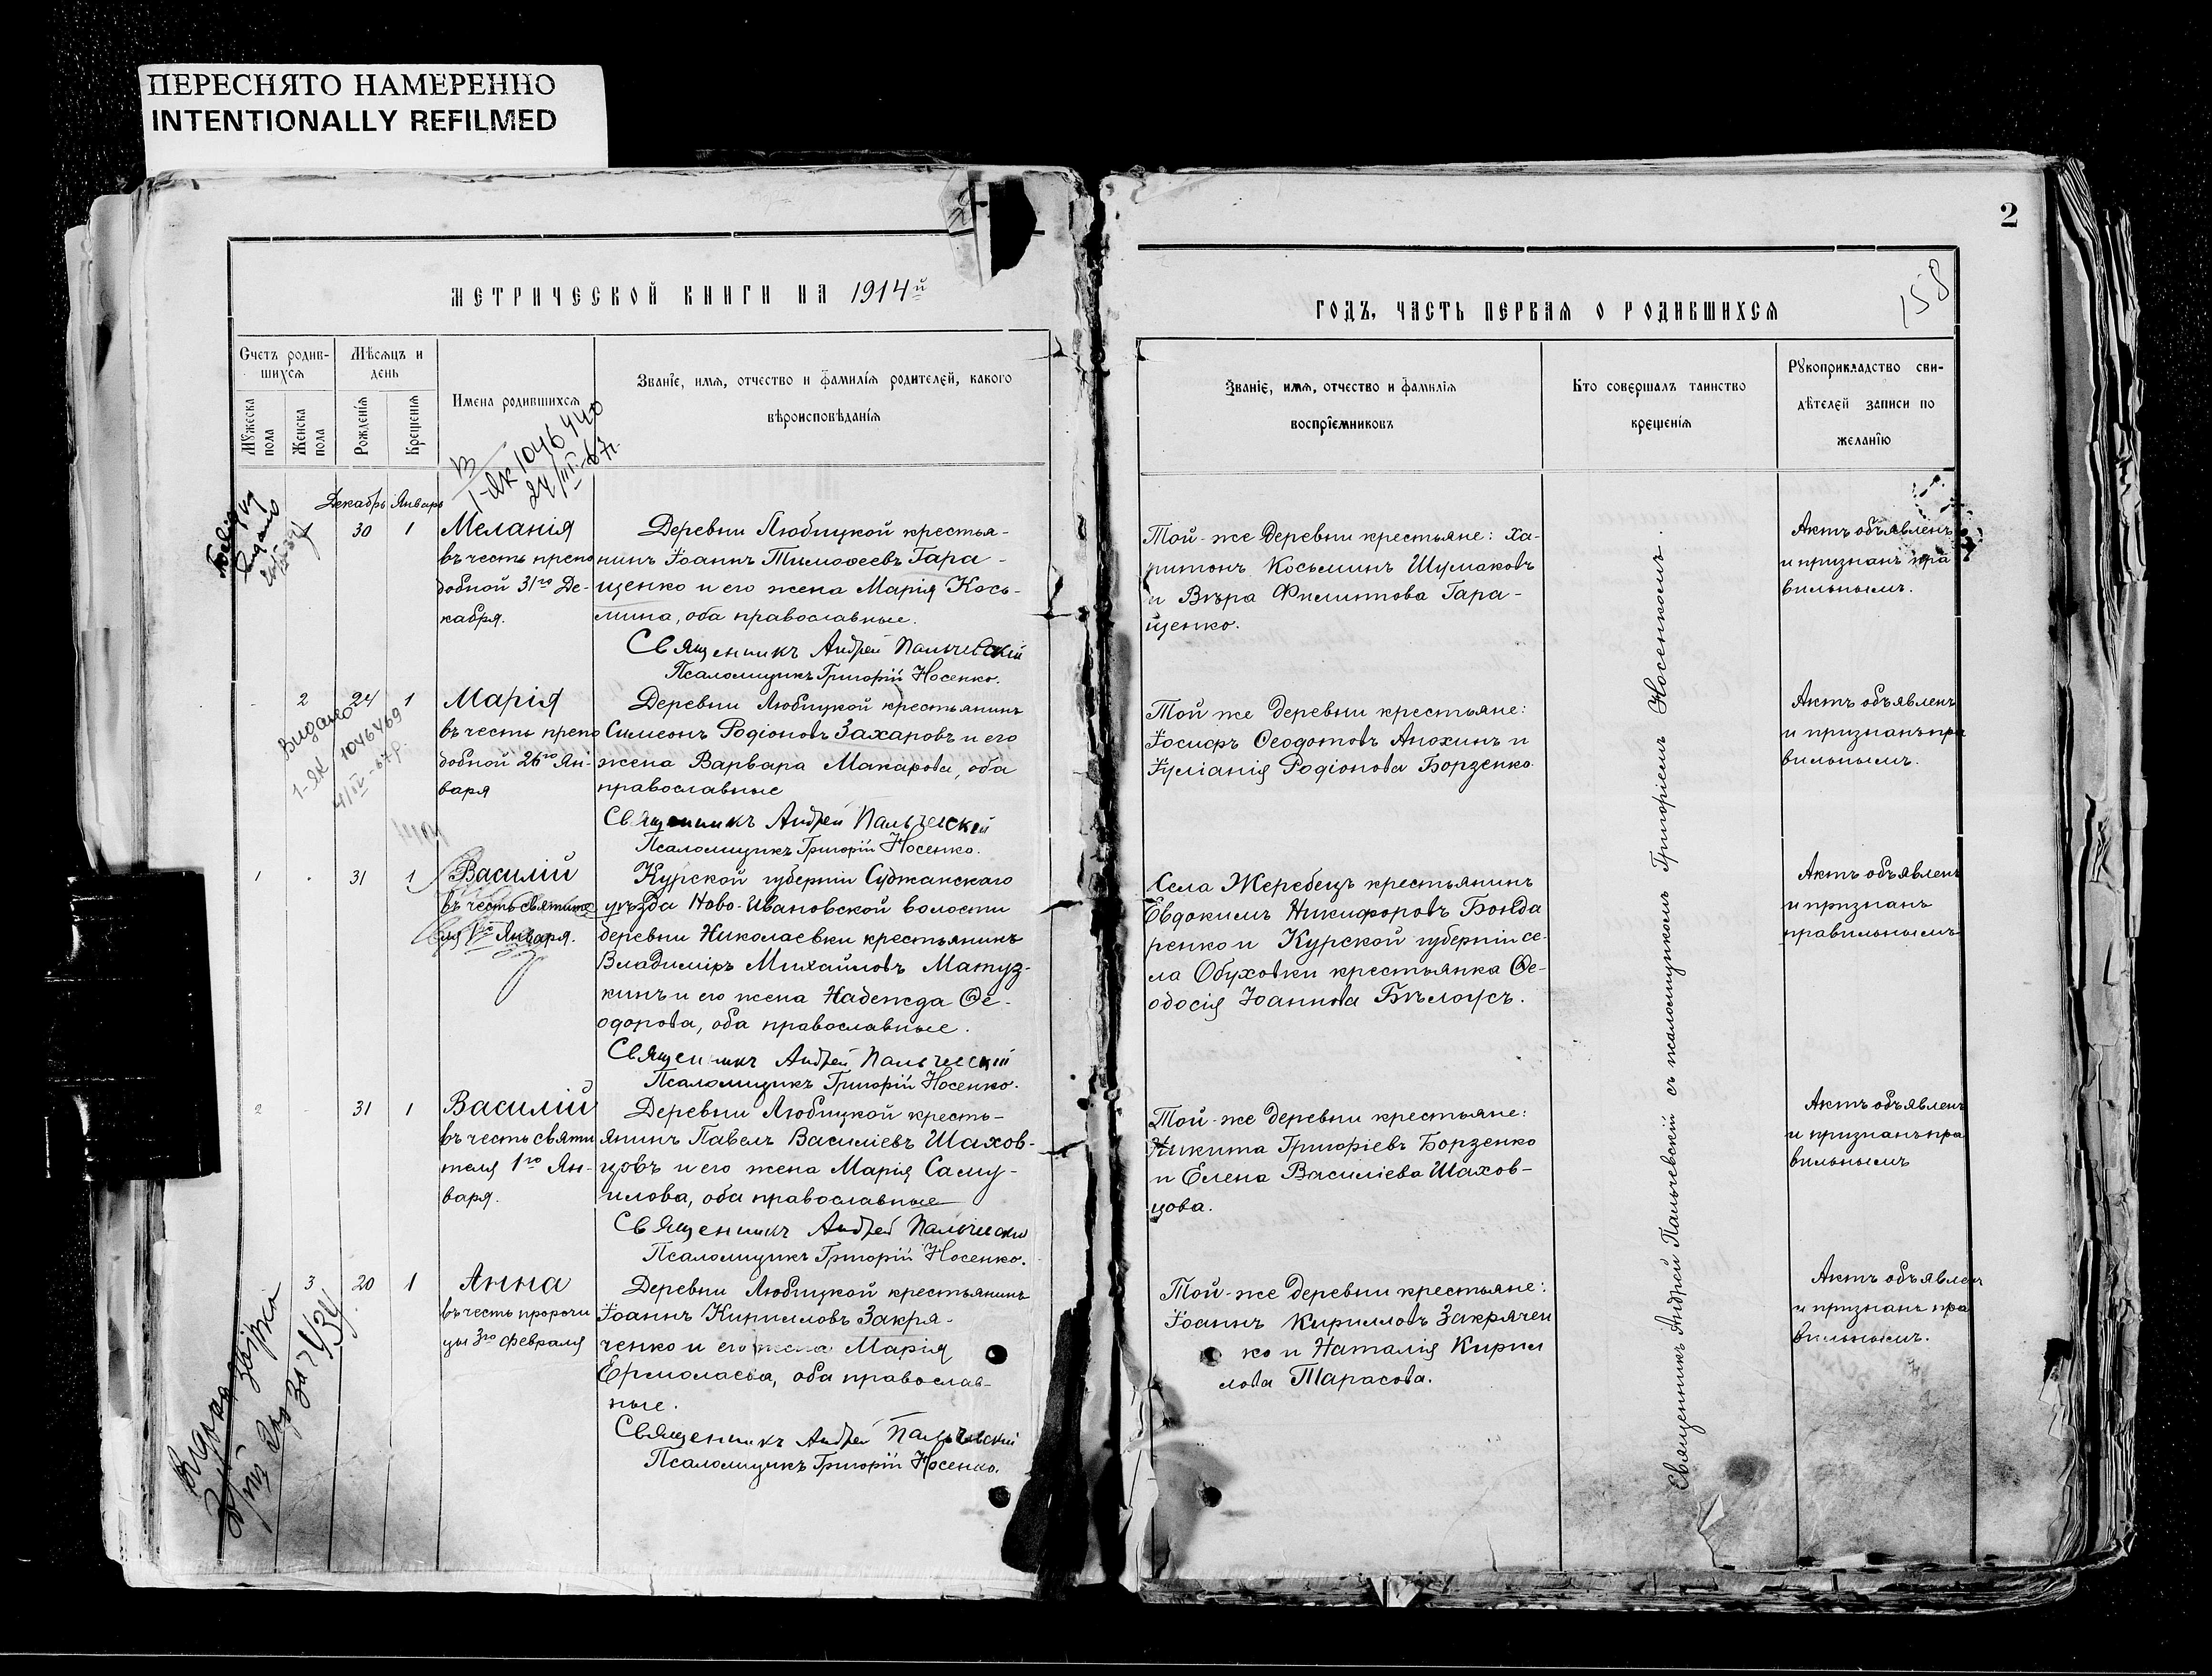 ПЕРЕСНЯТО НАМЕРЕННО
INTENTIONALLY REFILMED
2
158
МЕТРИЧЕСКОЙ КНИГИ НА 1914й
ГОДЪ, ЧАСТЬ ПЕРВАЯ О РОДИВШИХСЯ
Счетъ родив-
шихся
Мужеска
пола
Женска
пола
Мѣсяцъ и
день
Рожденія
Крещенія
Имена родившихся
Званіе, имя, отчество и фамилія родителей, какого
вѣроисповѣданія
Званіе, имя, отчество и фамилія
воспріемниковъ
Кто совершалъ таинство
крещенія
Рукоприкладство сви-
дѣтелей записи по
желанію
1-ЯК 1046440
24/III-67г.
Декабрь Январь
1 30 1
Меланія
въ честь препо
добной 31го Де-
кабря.
Деревни Любицкой крестья-
нинъ Іоаннъ Тимоѳеевъ Гара-
щенко и его жена Марія Кось-
мина, оба православные.
Священникъ Андрей Пальчевскій
Псаломщикъ Григорій Носенко.
Той-же деревни крестьяне: Ха-
ритонъ Косьминъ Шумаковъ
и Вѣра Филиппова Гара-
щенко.
Актъ объявленъ
и признанъ пра
вильнымъ.
- 2 24 1
Видано
1-ЯК 1046469
4/IV-67р.
Марія
въ честь препо
добной 26го Ян-
варя
Деревни Любицкой крестьянинъ
Симеонъ Родіоновъ Захаровъ и его
жена Варвара Макарова, оба
православные
Священникъ Андрей Пальчевскій
Псаломщикъ Григорій Носенко.
Той же деревни крестьяне:
Іосифъ Ѳеодотовъ Анохинъ и
Іуліанія Родіонова Борзенко
Актъ объявленъ
и признанъ пра
вильнымъ.
1 - 31 1
Василій
въ честь святите
ля 1го Января.
Курской губерніи Суджанскаго
уѣзда Ново-Ивановской волости
деревни Николаевки крестьянинъ
Владиміръ Михайловъ Матуз-
кинъ и его жена Надежда Ѳе-
одорова, оба православные.
Священникъ Андрей Пальчевскій
Псаломщикъ Григорій Носенко.
Села Жеребецъ крестьянинъ
Евдокимъ Никифоровъ Бонда
ренко и Курской губерніи се-
ла Обуховки крестьянка Ѳе-
одосія Іоаннова Бѣлоусъ.
Актъ объявленъ
и признанъ
правильнымъ
2 - 31 1
Василій
въ честь святи
теля 1го Ян-
варя.
Деревни Любицкой кресть-
янинъ Павелъ Василіевъ Шахов-
цовъ и его жена Марія Саму-
илова, оба православные
Священникъ Андрей Пальчевскій
Псаломщикъ Григорій Носенко.
Той-же деревни крестьяне:
Никита Григоріевъ Борзенко
и Елена Василіева Шахов-
цова.
Актъ объявленъ
и признанъ пра
вильнымъ
3 20 1
Анна
въ честь пророчи
цы 3го февраля
Деревни Любицкой крестьянинъ
Іоаннъ Кирилловъ Закря-
ченко и его жена Марія
Ермолаева, оба православ-
ные.
Священникъ Андрей Пальчевскій
Псаломщикъ Григорій Носенко.
Той-же деревни крестьяне:
Іоаннъ Кирилловъ Закрячен
ко и Наталія Кирил
лова Тарасова.
Актъ объявлен
и признанъ пра
вильнымъ.
Священникъ Андрей Пальчевскій съ псаломщикомъ Григоріемъ Носенкомъ.